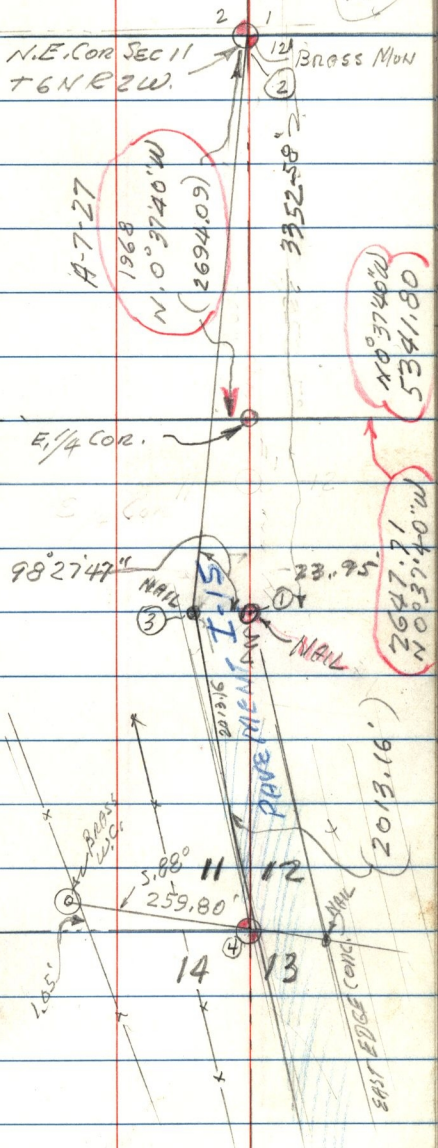 2 1
N.E. COR SEC 11
T6N R2W.
12
BRASS MON
②
A-7-27
1968
N.0°37'40"W
(2694.09)
3352.58'
N0°37'40"W
5341.80
E.1/4 COR.
2647.71
N0°37'40"W
98°27'47"
NAIL
③
I-15
①
23.95
NAIL
2013.16
PAVEMENT
(2013.16')
BRASS
W.C.
259.80'
11 12
④
14 13
1.05'
NAIL
EAST EDGE CONC.